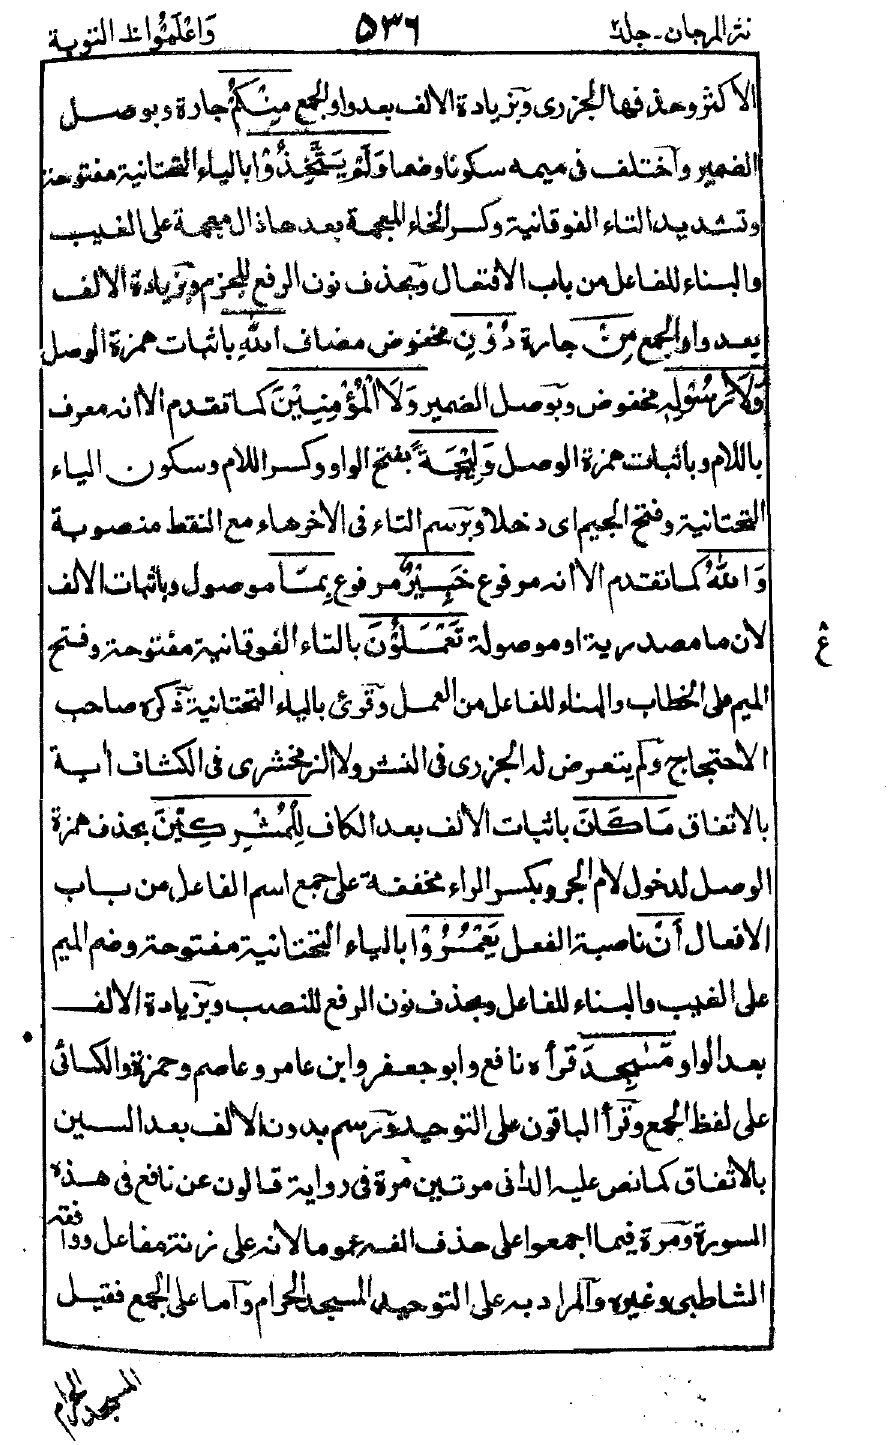 نثر المرجان - جلد٢ ٥٣٦ وَاعْلَمُوْا التوبة
الاكثر وحذفها الجزرى وَبزيادة الالف بعد واو الجمع مِنْكُمْ جارة وبوصل
الضمير وآختلف فى ميمه سكونا وضما وَلَمْ يَتَّخِذُوْا بالياء التحتانية مفتوحة
وتشديد التاء الفوقانية وكسر الخاء المعجمة بعدها ذال معجمة على الغيب
والبناء للفاعل من باب الافتعال وبحذف نون الرفع للجزم وبزيادة الالف
بعد واو الجمع مِنْ جارة دُوْنِ مخفوض مضاف اللهِ باثبات همزة الوصل
وَلَا رَسُوْلِهٖ مخفوض وبوصل الضمير وَلَا الْمُؤْمِنِيْنَ كما تقدم الا انه معرف
باللام وباثبات همزة الوصل وَلِيْجَةً بفتح الواو وكسر اللام وسكون الياء
التحتانية وفتح الجيم اى دخلا وبرسم التاء فى الاخر هاء مع النقط منصوبة
وَاللهُ كما تقدم الا انه مرفوع خَبِيْرٌ مرفوع بِمَا موصول وباثبات الالف
لان ما مصدرية او موصولة تَعْمَلُوْنَ بالتاء الفوقانية مفتوحة وفتح
ع
الميم على الخطاب والبناء للفاعل من العمل وقرئ بالياء التحتانية ذكره صاحب
الاحتجاج ولم يتعرض له الجزرى فى النشر ولا الزمخشرى فى الكشاف آية
بالاتفاق مَا كَانَ باثبات الالف بعد الكاف لِلْمُشْرِكِيْنَ بحذف همزة
الوصل لدخول لام الجر وبكسر الراء مخففة على جمع اسم الفاعل من باب
الافعال اَنْ ناصبة الفعل يَعْمُرُوْا بالياء التحتانية مفتوحة وضم الميم
على الغيب والبناء للفاعل وبحذف نون الرفع للنصب وبزيادة الالف
بعد الواو مَسٰجِدَ قرأه نافع وابو جعفر وابن عامر وعاصم وحمزة والكسائى
على لفظ الجمع وقرأ الباقون على التوحيد ورسم بدون الالف بعد السين
بالاتفاق كما نص عليه الدانى مرتين مرة فى رواية قالون عن نافع فى هذه
السورة ومرة فيما اجمعوا على حذف الفه عموما لانه على زنة مفاعل ووافقه
الشاطبى وغيره والمراد به على التوحيد المسجد الحرام وآما على الجمع فقيل
المسجد الحرام